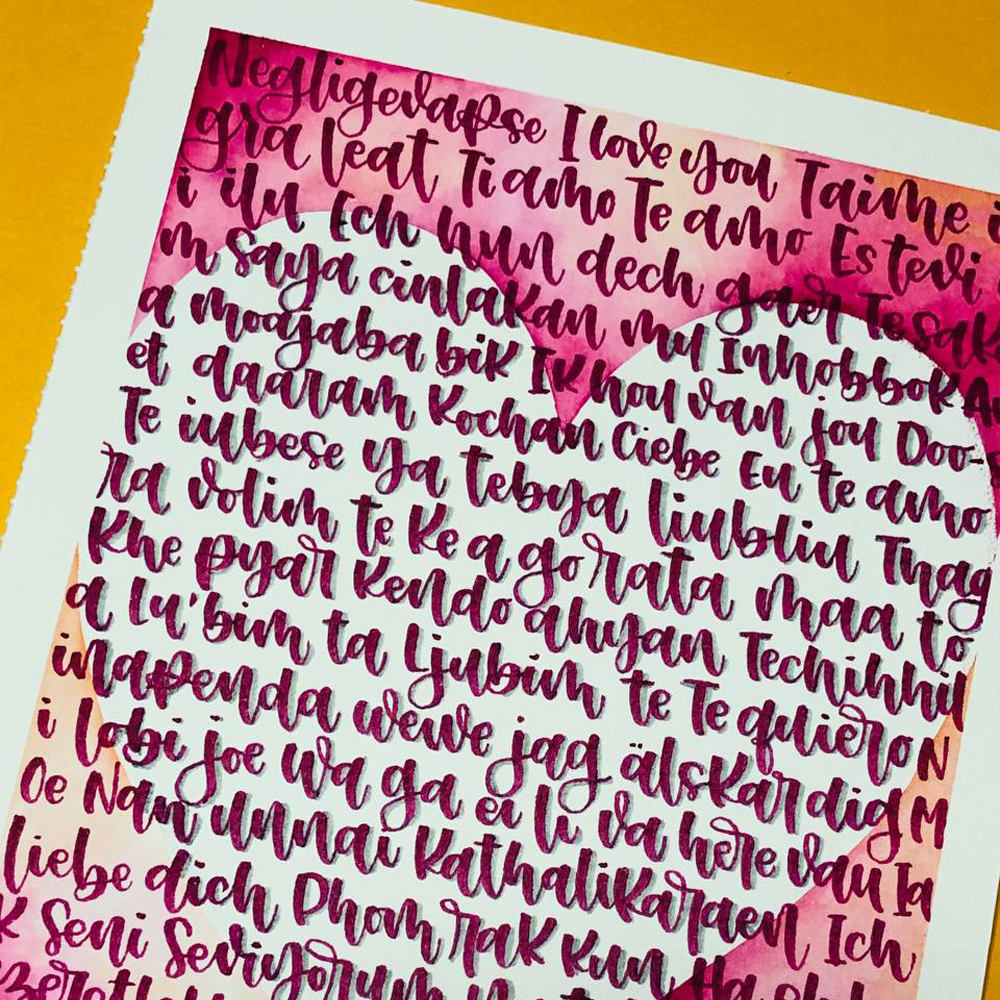 Negligevapse I love you Taime i
gra leat Ti amo Te amo Es tevi
i ilu Ech hun dech gaer Te sak
m saya cintakan mu Inhobbok A
a moajaba bik Ik hou van jou Doo-
et daaram Kochan Ciebe Eu te amo
Te iubese ya tebya liubliu Thag
ra volim te Ke a go rata maa to
Khe pyar Kendo ahyan Techihhil
a lu'bim ta Ljubim te Te quiero N
inapenda wewe jag älskar dig M
i lobi joe Wa ga ei li va here vau Ia
Oe Nan unnai Kathalikaraen Ich
liebe dich Phom rak kun
k Seni Seviyorum